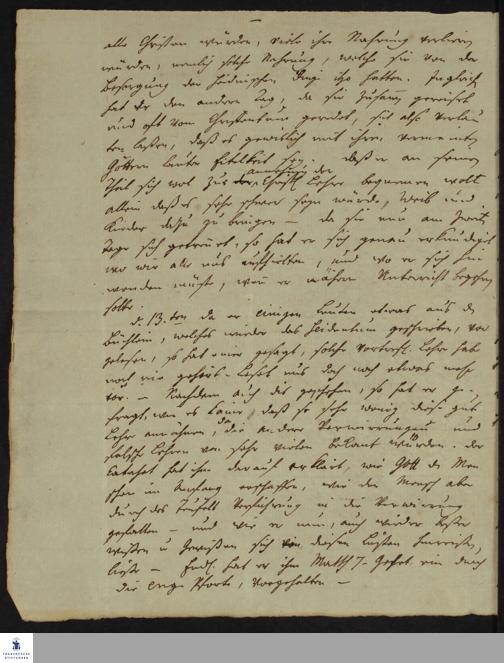 alle Christen würden, viele ihre Nahrung verlieren
würden, nemlich solche Nahrung, welche sie von der
Besorgung der heidnischen Dinge itzo hatten. Zugleich
hat Er den andern Tag, da sie zusam gereiset
und oft vom Christenthum geredet, sich also verlau
ten lassen, daß es gewislich mit ihren vermeinten
Göttern lauter Eitelkeit sey. daß er an seinem
Theil sich wol zur annehmung der Christl Lehre bequemen wolle
allein daß es sehr schwer seyn würde, Weib und
Kinder dazu zu bringen — da sie nun am
Tage sich getrennt, so hat er sich genau erkundiget
wo wir alle uns aufhielten, und wo er sich hin
wenden müste, wen er nähern Unterricht begehren
solte.
d. 13.ten da er einigen Leuten etwas aus d.
Büchlein, welches wieder das Heidenthum geschrieben, vor
gelesen, so hat einer gesagt, solche vortrefl. Lehre hab
noch nie gehört. Leset uns doch noch etwas mehr
vor. — Nachdem auch dis geschehen, so hat er ge-
fragt, wie es käme, daß so sehr wenig diese gute
Lehre annähmen, da die andere Verwirrungen und
falsche Lehren von sehr vielen bekant würden. der
Catechet hat ihm darauf erklärt, wie Gott die Men
schen im Anfang erschaffen, wie der Mensch aber
durch des Teufels Verführung in die Verwirrung
gefallen — und wie er nun, auch wieder
Wissen u Gewissen sich von diesen Lüsten
liesse — Endl. hat er ihm Matth 7. Gehet ein durch
die enge Pforte, vorgehalten —
FRANCKESCHE
STIFTUNGEN